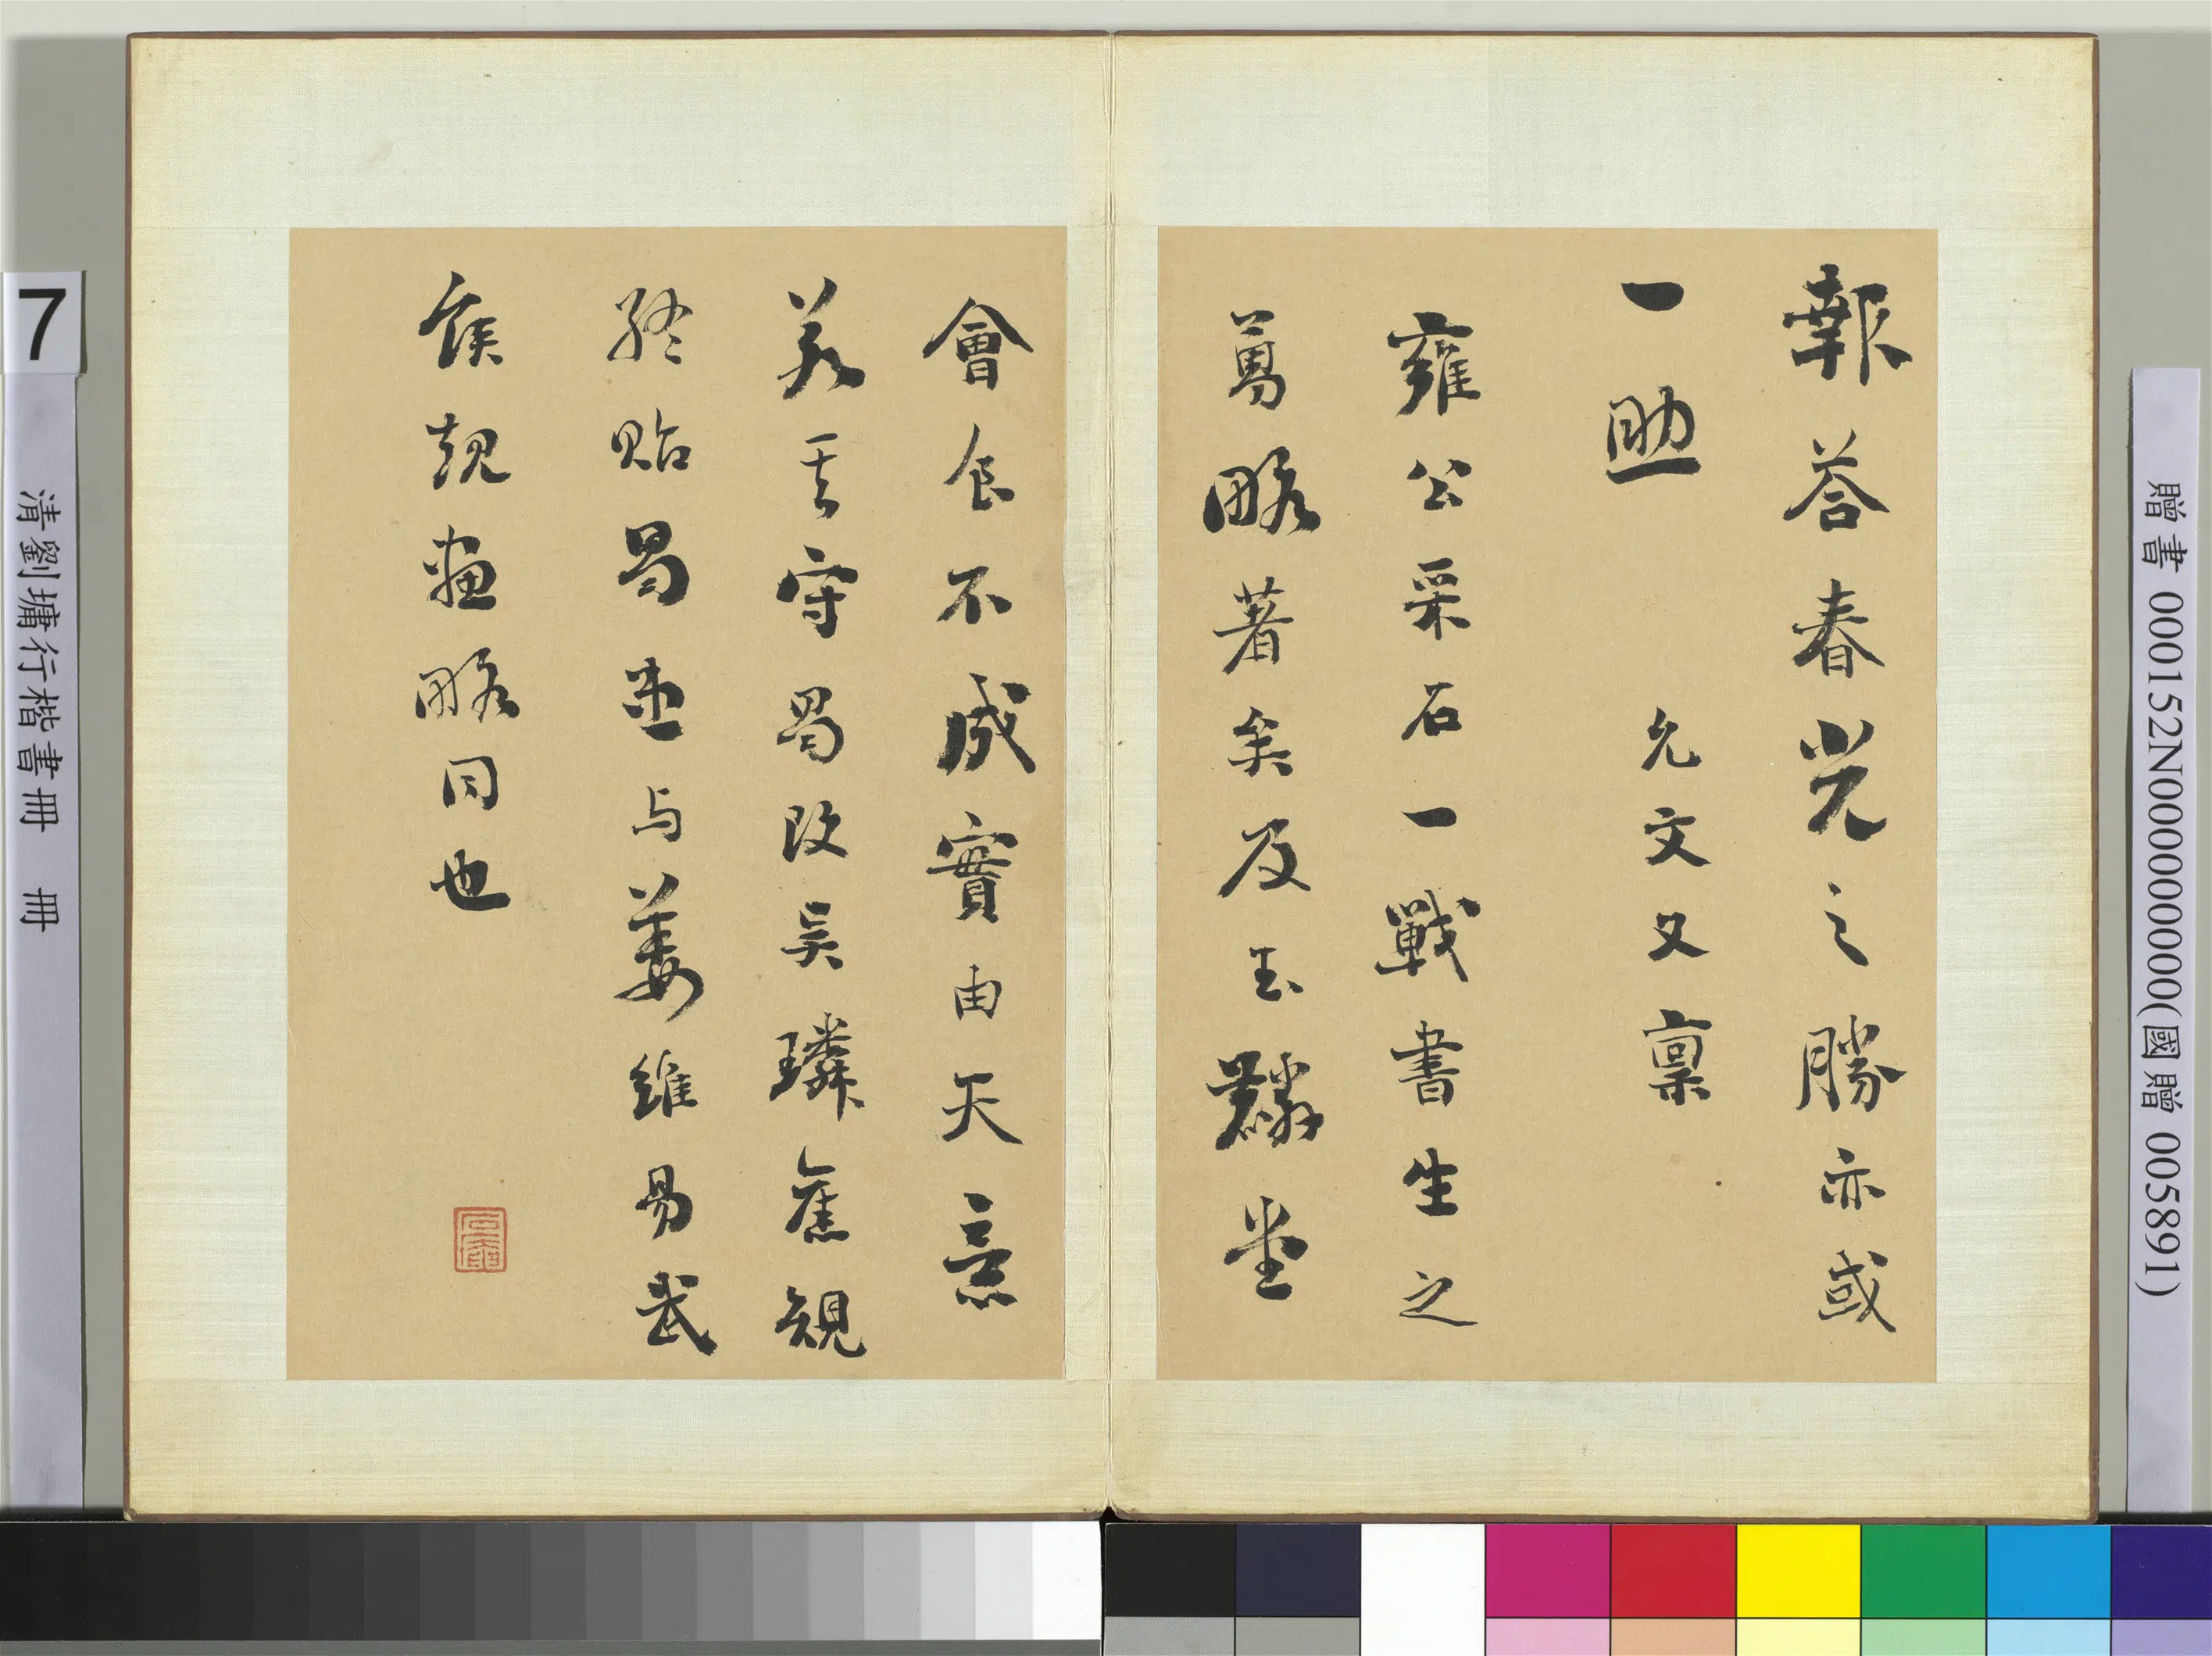 報答春光之勝亦或
一助
允文又稟
雍公采石一戰書生之
勇略著矣及玉麟堂
會食不成實由天意
若其守蜀改吳璘舊規
終貽蜀患与姜維易武
侯規畫略同也
7
清劉墉行楷書冊 冊
贈書 000152N000000000(國贈 005891)